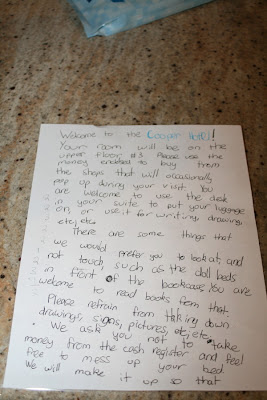 Welcome to the Cooper Hotel!
Your room will be on the
upper floor, #3. Please use the
money enclosed to buy from
the shops that will occasionally
pop up during your visit. You
are welcome to use the desk
in your suite to put your luggage
on, or use it for writing, drawing,
etc, etc.
There are some things that
we would prefer you to look at, and
not touch, such as the doll beds
in front of the bookcase. You are
welcome to read books from that.
Please refrain from taking down
drawings, signs, pictures, etc, etc.
We ask you not to take
money from the cash register and feel
free to mess up your bed.
We will make it up so that